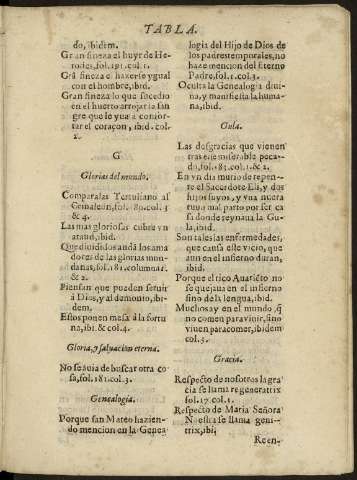 TABLA.
do, ibidem.
Gran fineza el huyr de He-
rodes, fol. 191. col. 1.
Grã fineza el hazerse ygual
con el hombre, ibid.
Gran fineza lo que sucedio
en el huerto arrojar la san
gre que le yua a confor-
tar el coraçon, ibid. col.
2.
G
Glorias del mundo.
Comparalas Tertuliano al
Camaleon, fol. 180. col. 3
& 4.
Las mas gloriosas cubre vn
ataud, ibid.
Que diuididos andã los ama
dores de las glorias mun-
danas, fol. 181. columna 1.
& 2.
Piensan que pueden seruir
á Dios, y al demonio, ibi-
dem.
Estos ponen mesa á la fortu
na, ibi. & col. 4.
Gloria, y saluacion eterna.
No se auia de buscar otra co
sa, fol. 181. col. 3.
Genealogia.
Porque san Mateo hazien-
do mencion en la Genea-
logia del Hijo de Dios de
los padres temporales, no
haze mencion del Eterno
Padre, fol. 1. col. 3.
Oculta la Genealogia diui-
na, y manifiesta la huma-
na, ibid.
Gula.
Las desgracias que vienen
tras este miserable peca-
do, fol. 183. col. 1. & 2.
En vn dia murio de repen-
te el Sacerdote Eli, y dos
hijos suyos, y vna nuera
tuuo mal parto por ser ca
sa donde reynaua la Gu-
la, ibid.
Son tales las enfermedades,
que causa este vicio, que
aun en el infierno duran,
ibid.
Porque el rico Auariẽto no
se quejaua en el infierno
sino de la lengua, ibid.
Muchos ay en el mundo, q̃
no comen para viuir, sino
viuen para comer, ibidem
col. 3.
Gracia.
Respecto de nosotros la gra
cia se llama regeneratrix
fol. 17. col. 1.
Respecto de Maria Señora
Nuestra se llama geni-
trix, ibi,
Reen-